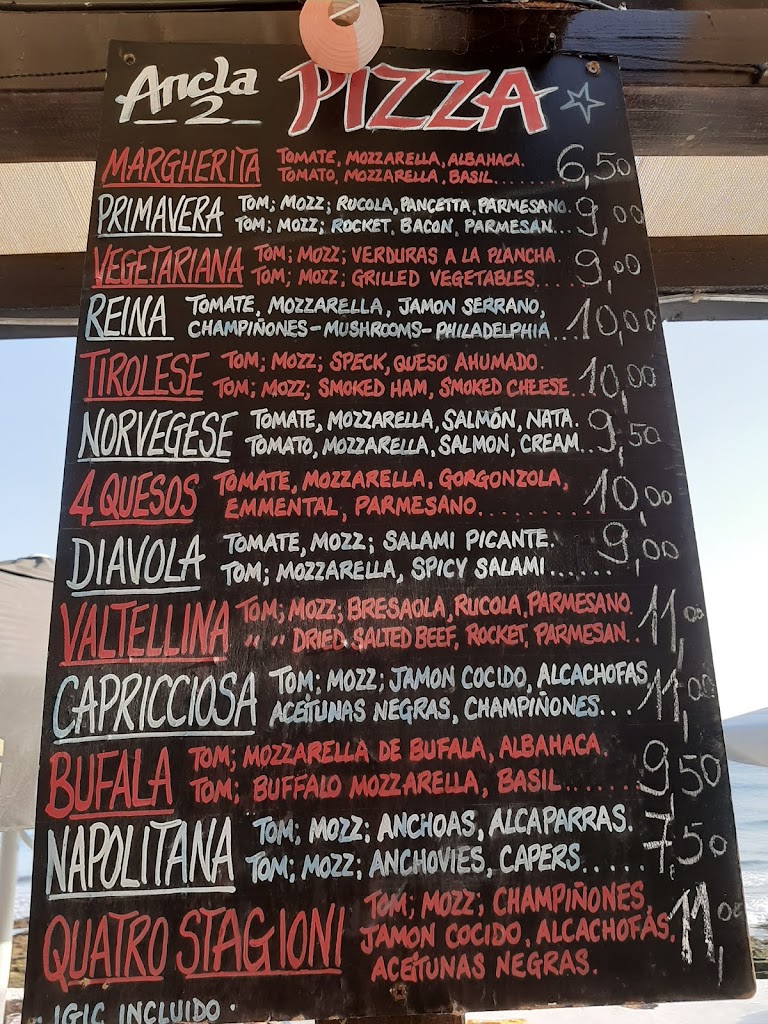 Ancla 2 PIZZA
MARGHERITA TOMATE, MOZZARELLA, ALBAHACA.
TOMATO, MOZZARELLA, BASIL....... 6,50
PRIMAVERA TOM; MOZZ; RUCOLA, PANCETTA, PARMESANO.
TOM; MOZZ; ROCKET, BACON, PARMESAN... 9,00
VEGETARIANA TOM; MOZZ; VERDURAS A LA PLANCHA.
TOM; MOZZ; GRILLED VEGETABLES..... 9,00
REINA TOMATE, MOZZARELLA, JAMON SERRANO,
CHAMPIÑONES-MUSHROOMS-PHILADELPHIA... 10,00
TIROLESE TOM; MOZZ; SPECK, QUESO AHUMADO.
TOM; MOZZ; SMOKED HAM, SMOKED CHEESE... 10,00
NORVEGESE TOMATE, MOZZARELLA, SALMÓN, NATA.
TOMATO, MOZZARELLA, SALMON, CREAM... 9,50
4 QUESOS TOMATE, MOZZARELLA, GORGONZOLA,
EMMENTAL, PARMESANO.......... 10,00
DIAVOLA TOMATE, MOZZ; SALAMI PICANTE.
TOM; MOZZARELLA, SPICY SALAMI...... 9,00
VALTELLINA TOM; MOZZ; BRESAOLA, RUCOLA, PARMESANO.
" " DRIED SALTED BEEF, ROCKET, PARMESAN.. 11,00
CAPRICCIOSA TOM; MOZZ; JAMON COCIDO, ALCACHOFAS,
ACEITUNAS NEGRAS, CHAMPIÑONES... 11,00
BUFALA TOM; MOZZARELLA DE BUFALA, ALBAHACA.
TOM; BUFFALO MOZZARELLA, BASIL....... 9,50
NAPOLITANA TOM; MOZZ; ANCHOAS, ALCAPARRAS.
TOM; MOZZ; ANCHOVIES, CAPERS..... 7,50
QUATRO STAGIONI TOM; MOZZ; CHAMPIÑONES,
JAMON COCIDO, ALCACHOFAS, 11,00
ACEITUNAS NEGRAS.
· IGIC INCLUIDO ·